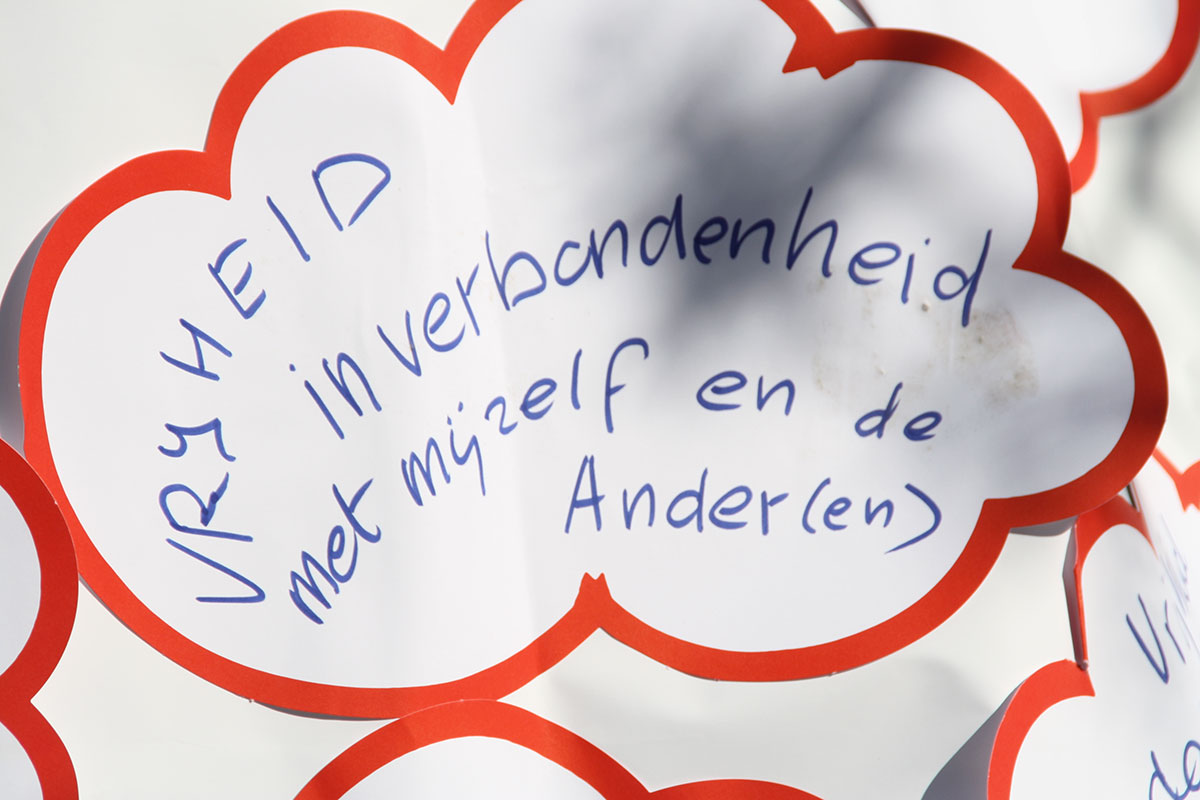 VRYHEID
in verbondenheid
met mijzelf en de
Ander(en)
de